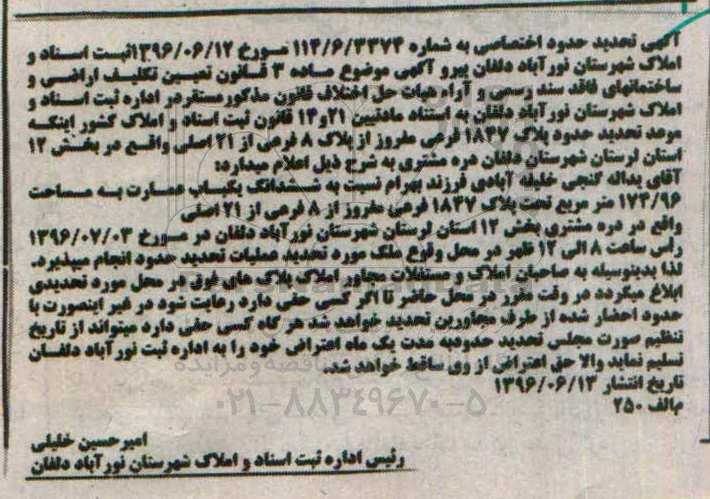 آگهی تحدید حدود اختصاصی به شماره 114/6/3374 مورخ 1396/06/12ثبت اسناد و
املاک شهرستان نورآباد دلفان پیرو آگهی موضوع ماده 3 قانون تعیین تکلیف اراضی و
ساختمانهای فاقد سند رسمی و آراء هیات حل اختلاف قانون مذکورمستقردر اداره ثبت اسناد و
املاک شهرستان نورآباد دلفان به استناد مادتیین 21و14 قانون ثبت اسناد و املاک کشور اینکه
موعد تحدید حدود پلاک 1847 فرعی مفروز از پلاک 8 فرعی از 21 اصلی واقع در بخش 12
استان لرستان شهرستان دلفان دره مشتری به شرح ذیل اعلام میدارد:
آقای یداله گنجی خلیفه آبادی فرزند بهرام نسبت به ششدانگ یکباب عمارت به مساحت
173/96 متر مربع تحت پلاک 1847 فرعی مفروز از 8 فرعی از 21 اصلی
واقع در دره مشتری بخش 12 استان لرستان شهرستان نورآباد دلفان در مورخ 1396/07/03
رأس ساعت 8 الی 12 ظهر در محل وقوع ملک مورد تحدید عملیات تحدید حدود انجام میپذیرد.
لذا بدینوسیله به صاحبان املاک و مستغلات مجاور املاک پلاک های فوق در محل مورد تحدیدی
ابلاغ میگردد در وقت مقرر در محل حاضر تا اگر کسی حقی دارد رعایت شود در غیر اینصورت با
حدود احضار شده از طرف مجاورین تحدید خواهد شد هر گاه کسی حقی دارد میتواند از تاریخ
تنظیم صورت مجلس تحدید حدودبه مدت یک ماه اعتراض خود را به اداره ثبت نورآباد دلفان
تسلیم نماید والا حق اعتراض از وی ساقط خواهد شد.
تاریخ انتشار 1396/06/13
م/الف 250
۰۲۱-۸۸۳۴۹۶۷۰-۵
امیرحسین خلیلی
رئیس اداره ثبت اسناد و املاک شهرستان نورآباد دلفان